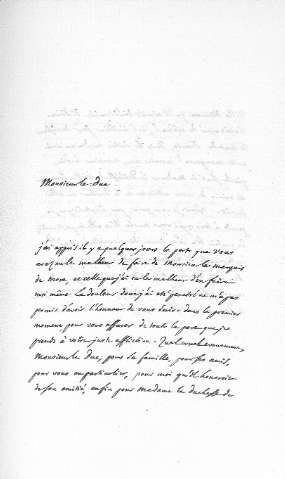 Monsieur le Duc
j'ai appris il y a quelques jours la perte que vous
avez eu le malheur de faire de Monsieur le marquis
de mora, et celle que j'ai eu le malheur d'en faire
moi même. La douleur dont j'ai été pénétré ne m'a pas
permis d'avoir l'honneur de vous écrire dans le premier
moment pour vous assurer de toute la part que je
prends à votre juste affliction.
Monsieur le Duc, pour sa famille, pour ses amis,
pour vous en particulier, pour moi qu'il honoroit
de son amitié, enfin pour madame la duchesse de